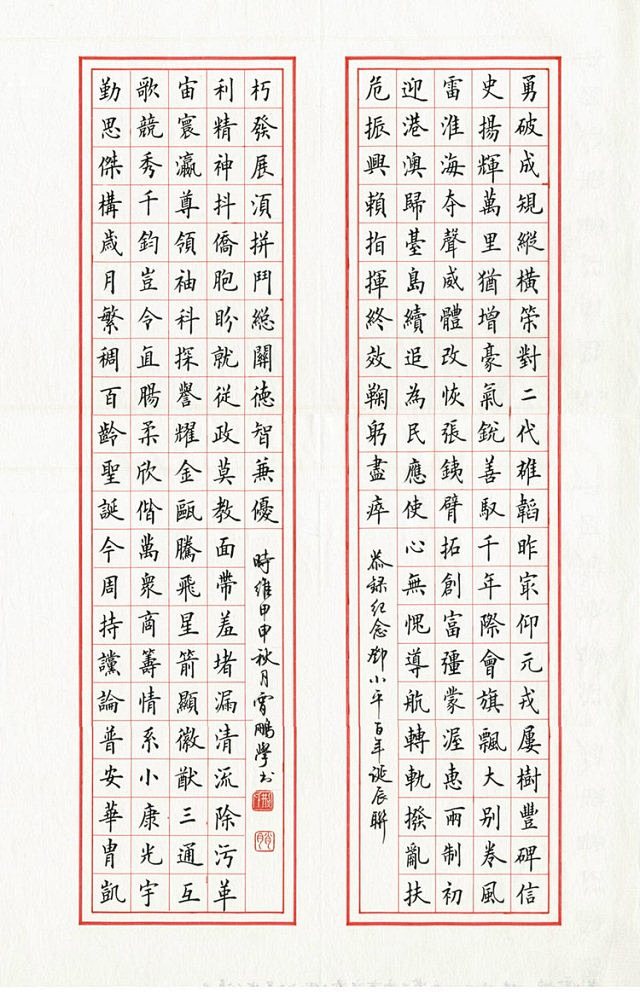 勇破成規縱橫筞對二代雄韜昨冣仰元戎屢樹豐碑信
史揚輝萬里猶增豪氣銳善馭千年際會旗飄大别卷風
雷淮海夺聲威體改恢張銕臂拓創富彊蒙渥惠雨制初
迎港澳歸臺島續追為民應使心無愧導航轉軌撥亂扶
危振興賴指揮終效鞠躬盡瘁
恭録紀念鄧小平百年誕辰聯
勤思傑構歲月繁稠百齡聖誕今周持讜論普安華胄凱
歌競秀千鈞豈令直腸柔欣偕萬衆商籌情系小康光宇
宙寰瀛尊領袖科探譽耀金甌騰飛星箭顯徽猷三通互
利精神抖僑胞盼就從政莫教面帶羞堵漏清流除污革
朽發展須拼鬥總關德智兼優
時維甲申秋月雲鵬學书